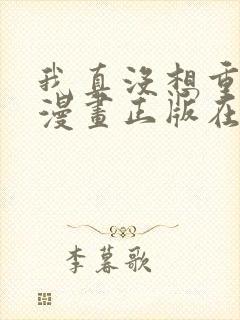 我真没想重
漫畫正版在
李暮歌